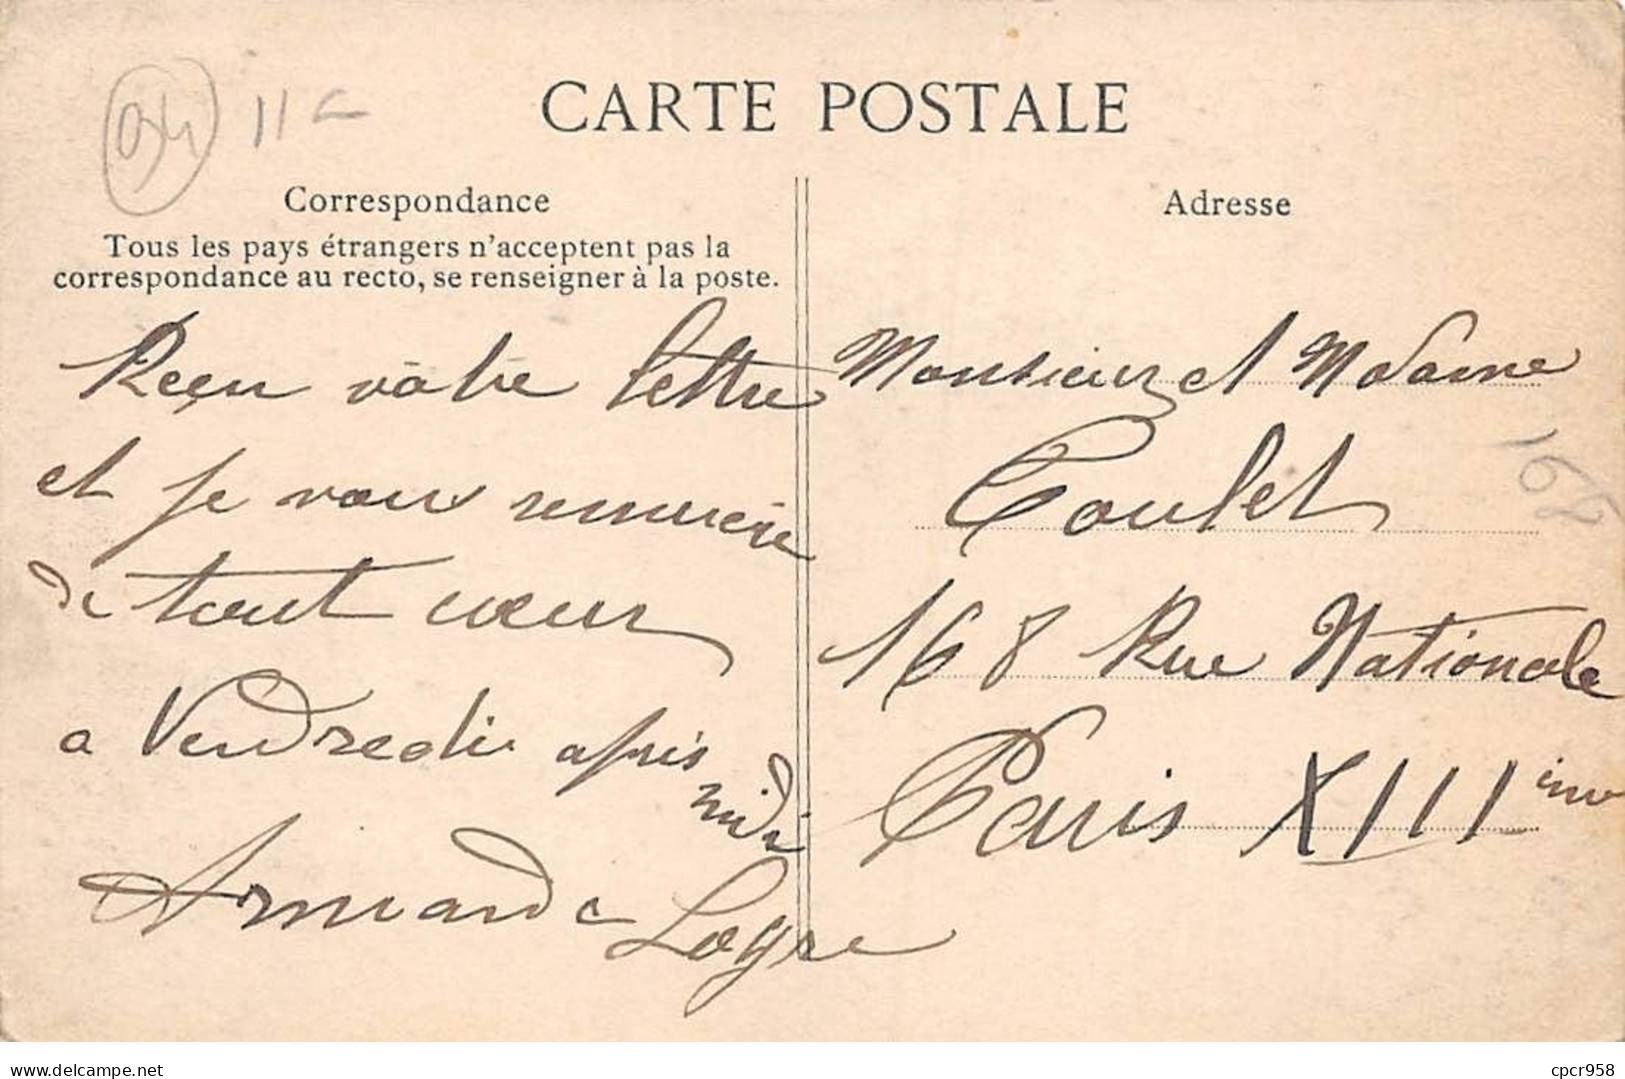 94 11 c
CARTE POSTALE
Correspondance
Tous les pays étrangers n'acceptent pas la
correspondance au recto, se renseigner à la poste.
Reçu vôtre lettre
et je vous remercie
de tout cœur
a Vendredi après
midi
Armande Logre
Adresse
Monsieur et Madame
Coulet
168
168 Rue Nationale
Paris XIII ème
www.delcampe.net
cpcr958